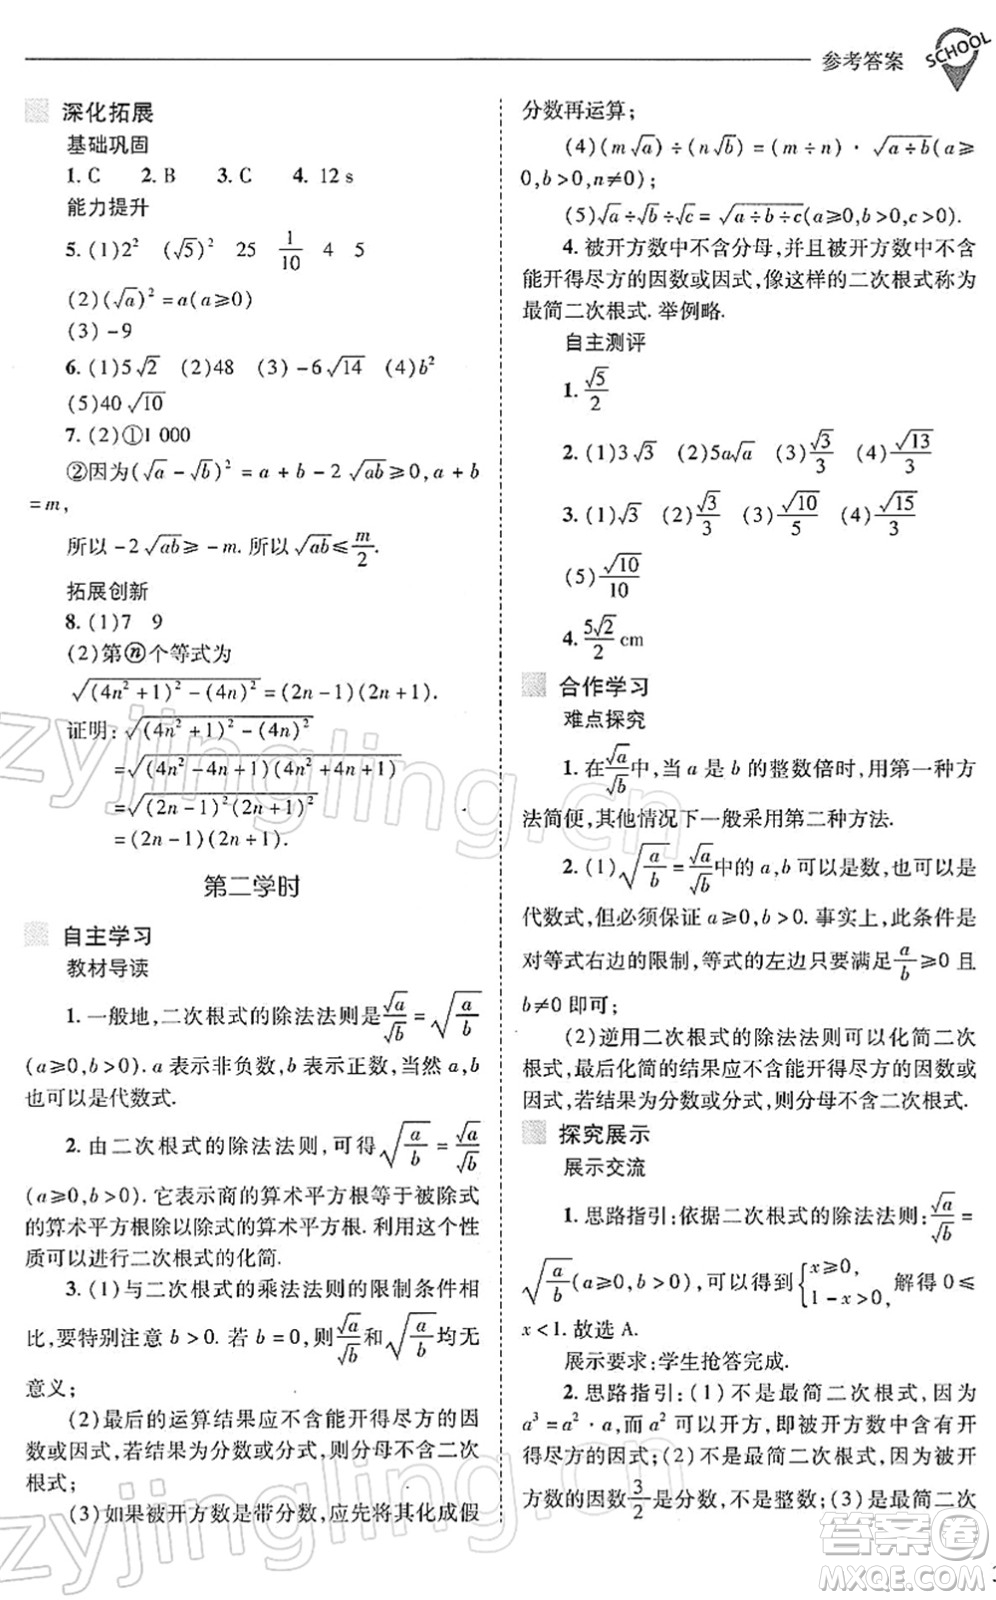 参考答案
SCHOOL
深化拓展
基础巩固
1. C 2. B 3. C 4. 12 s
能力提升
5. (1)2² (√5)² 25 1/10 4 5
(2)(√a)²=a(a≥0)
(3)-9
6. (1)5√2 (2)48 (3)-6√14 (4)b²
(5)40√10
7. (2)①1 000
②因为(√a-√b)²=a+b-2√ab≥0,a+b
=m,
所以-2√ab≥-m. 所以√ab≤m/2.
拓展创新
8. (1)7 9
(2)第ⓝ个等式为
√((4n²+1)²-(4n)²)=(2n-1)(2n+1).
证明:√((4n²+1)²-(4n)²)
=√((4n²-4n+1)(4n²+4n+1))
=√((2n-1)²(2n+1)²)
=(2n-1)(2n+1).
第二学时
自主学习
教材导读
1. 一般地,二次根式的除法法则是√a/√b=√(a/b)
(a≥0,b>0). a 表示非负数,b 表示正数,当然 a,b
也可以是代数式.
2. 由二次根式的除法法则,可得√(a/b)=√a/√b
(a≥0,b>0). 它表示商的算术平方根等于被除式
的算术平方根除以除式的算术平方根. 利用这个性
质可以进行二次根式的化简.
3. (1)与二次根式的乘法法则的限制条件相
比,要特别注意 b>0. 若 b=0,则√a/√b和√(a/b)均无
意义;
(2)最后的运算结果应不含能开得尽方的因
数或因式,若结果为分数或分式,则分母不含二次
根式;
(3)如果被开方数是带分数,应先将其化成假
分数再运算;
(4)(m√a)÷(n√b)=(m÷n)·√(a÷b)(a≥
0,b>0,n≠0);
(5)√a÷√b÷√c=√(a÷b÷c)(a≥0,b>0,c>0).
4. 被开方数中不含分母,并且被开方数中不含
能开得尽方的因数或因式,像这样的二次根式称为
最简二次根式. 举例略.
自主测评
1. √5/2
2. (1)3√3 (2)5a√a (3)√3/3 (4)√13/3
3. (1)√3 (2)√3/3 (3)√10/5 (4)√15/3
(5)√10/10
4. 5√2/2 cm
合作学习
难点探究
1. 在√a/√b中,当 a 是 b 的整数倍时,用第一种方
法简便,其他情况下一般采用第二种方法.
2. (1)√(a/b)=√a/√b中的 a,b 可以是数,也可以是
代数式,但必须保证 a≥0,b>0. 事实上,此条件是
对等式右边的限制,等式的左边只要满足a/b≥0 且
b≠0 即可;
(2)逆用二次根式的除法法则可以化简二次
根式,最后化简的结果应不含能开得尽方的因数或
因式,若结果为分数或分式,则分母不含二次根式.
探究展示
展示交流
1. 思路指引:依据二次根式的除法法则:√a/√b=
√(a/b)(a≥0,b>0),可以得到{x≥0, 1-x>0, 解得 0≤
x<1. 故选 A.
展示要求:学生抢答完成.
2. 思路指引:(1)不是最简二次根式,因为
a³=a²·a,而 a² 可以开方,即被开方数中含有开
得尽方的因式;(2)不是最简二次根式,因为被开
方数的因数3/2是分数,不是整数;(3)是最简二次
zyjingling.cn
zyjingling.cn
答案圈
MXQE.COM